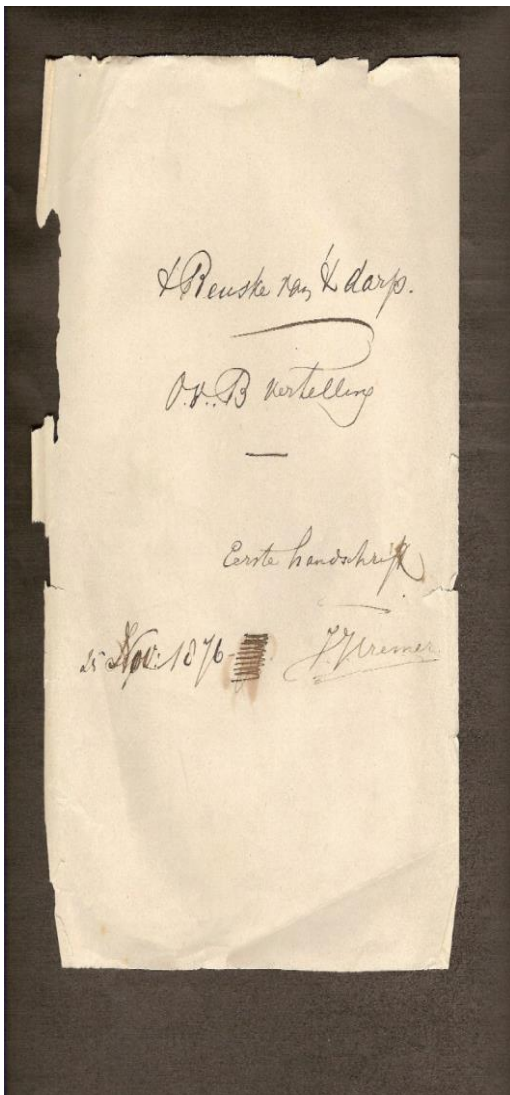 't Reuske van 't darp.
O.v.. B vertelling
Eerste handschrift
25 Nov: 1876 J.J. Cremer